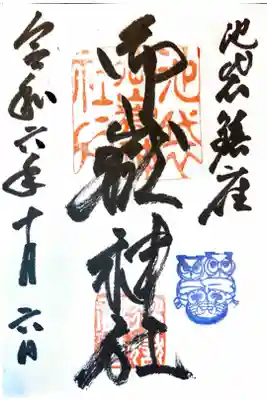 池袋鎮座
御嶽神社
令和六年十月六日